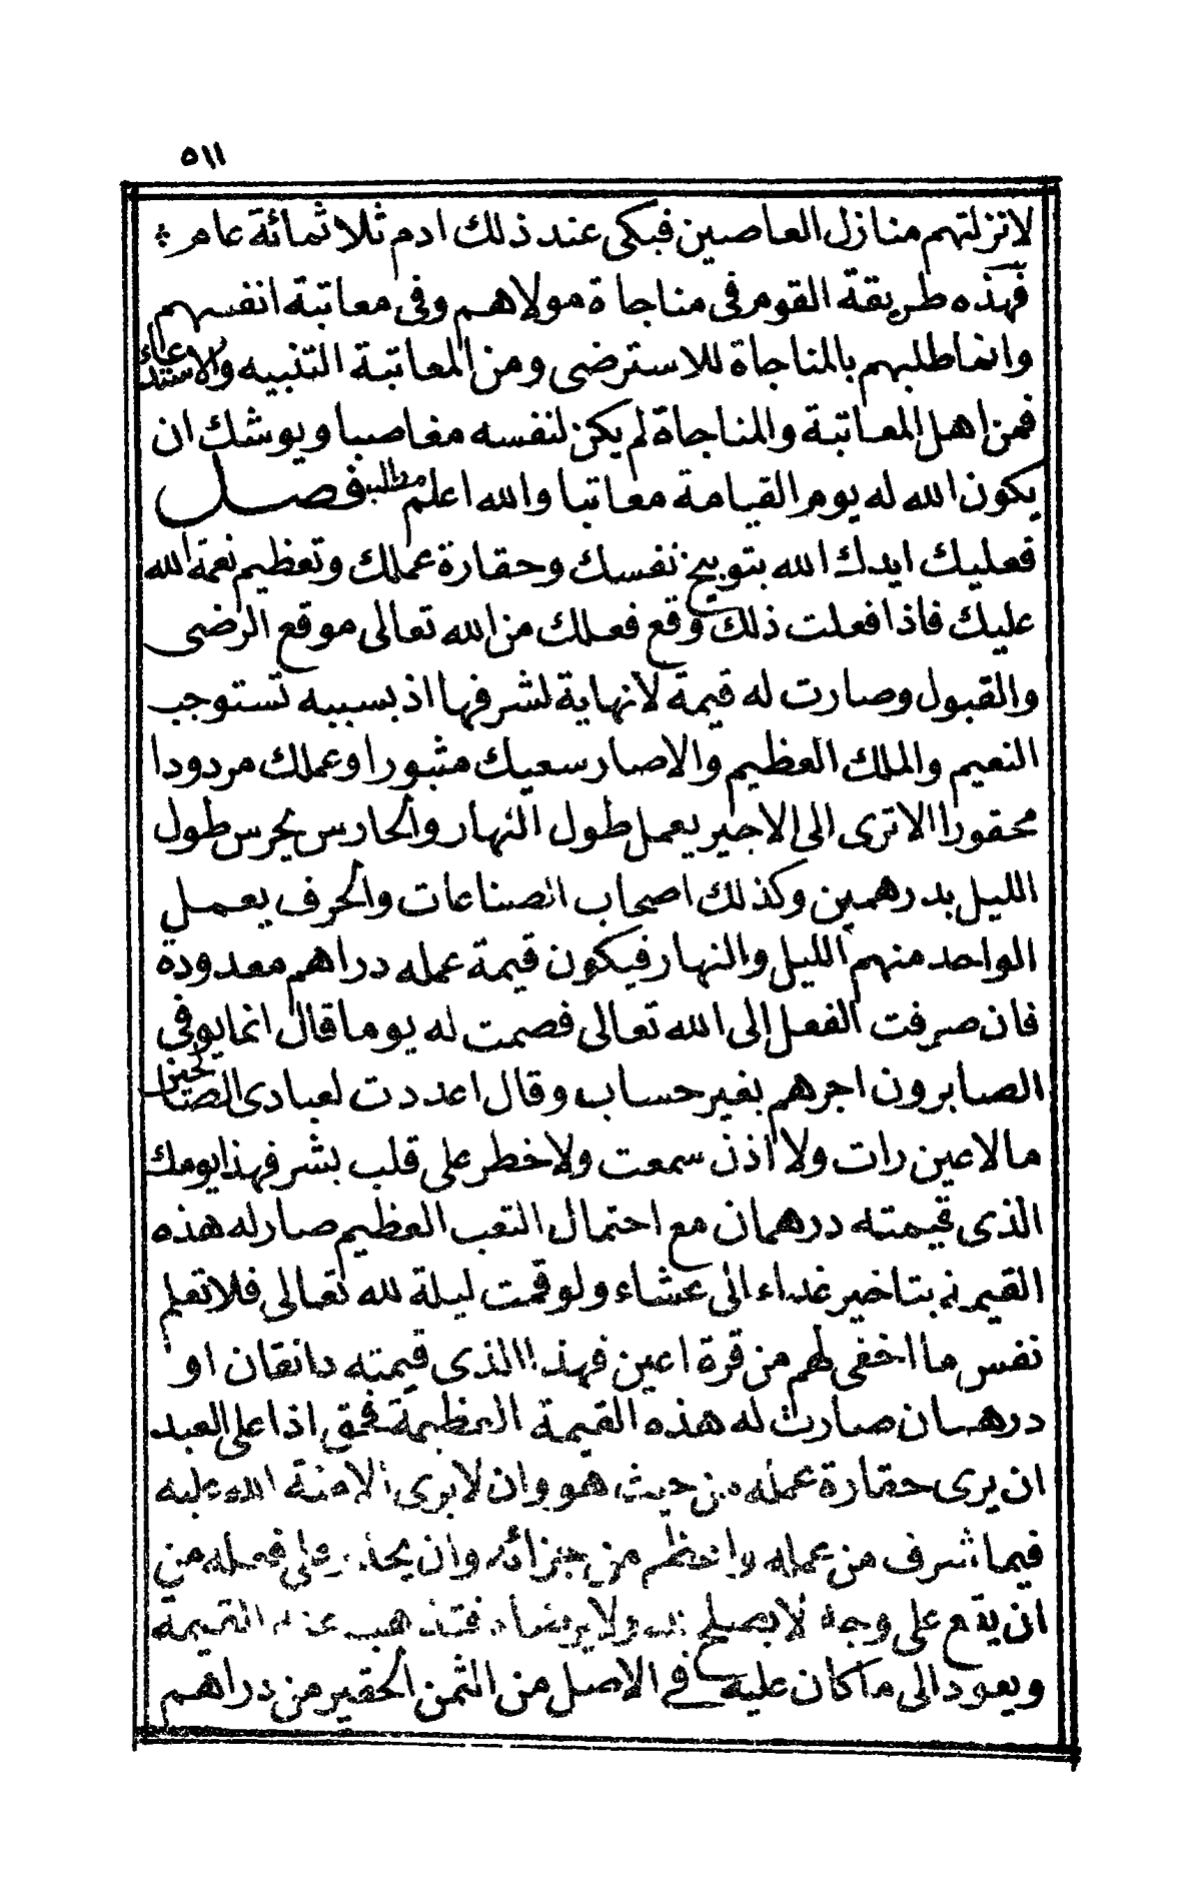 ٥١١
لانزلتهم منازل العاصين فبكى عند ذلك ادم ثلاثمائة عام
فهذه طريقة القوم فى مناجاة مولاهم وفى معاتبة انفسهم
وانما طلبهم بالمناجاة للاسترضى ومن المعاتبة التنبيه والاستدعاء
فمن اهل المعاتبة والمناجاة لم يكن لنفسه مغاصبا ويوشك ان
يكون الله له يوم القيامة معاتبا والله اعلم مطلب فصل
فعليك ايدك الله بتوبيخ نفسك وحقارة عملك وتعظيم نعمة الله
عليك فاذا فعلت ذلك وقع فعلك من الله تعالى موقع الرضى
والقبول وصارت له قيمة لانهاية لشرفها اذ بسببه تستوجب
النعيم والملك العظيم والاصار سعيك مثبورا وعملك مردودا
محقورا الاترى الى الاجير يعمل طول النهار والحارس يحرس طول
الليل بدرهمين وكذلك اصحاب الصناعات والحرف يعمل
الواحد منهم الليل والنهار فيكون قيمة عمله دراهم معدودة
فان صرفت الفعل الى الله تعالى فصمت له يوما قال انما يوفى
الصابرون اجرهم بغير حساب وقال اعددت لعبادى الصالحين
مالاعين رات ولا اذن سمعت ولاخطر على قلب بشر فهذا يومك
الذى قيمته درهمان مع احتمال التعب العظيم صار له هذه
القيمة بتاخير غداء الى عشاء ولو قمت ليلة لله تعالى فلا تعلم
نفس ما اخفى لهم من قرة اعين فهذا الذى قيمته دانقان او
درهمان صارت له هذه القيمة العظيمة فحق اذا على العبد
ان يرى حقارة عمله من حيث هو وان لا يرى الامنة الله عليه
فيما شرف من عمله واعظم من جزائه وان يحذر على فعله من
ان يقع على وجه لا يصلح لله ولا يرضاه فتذهب عنه القيمة
ويعود الى ما كان عليه فى الاصل من الثمن الحقير من دراهم